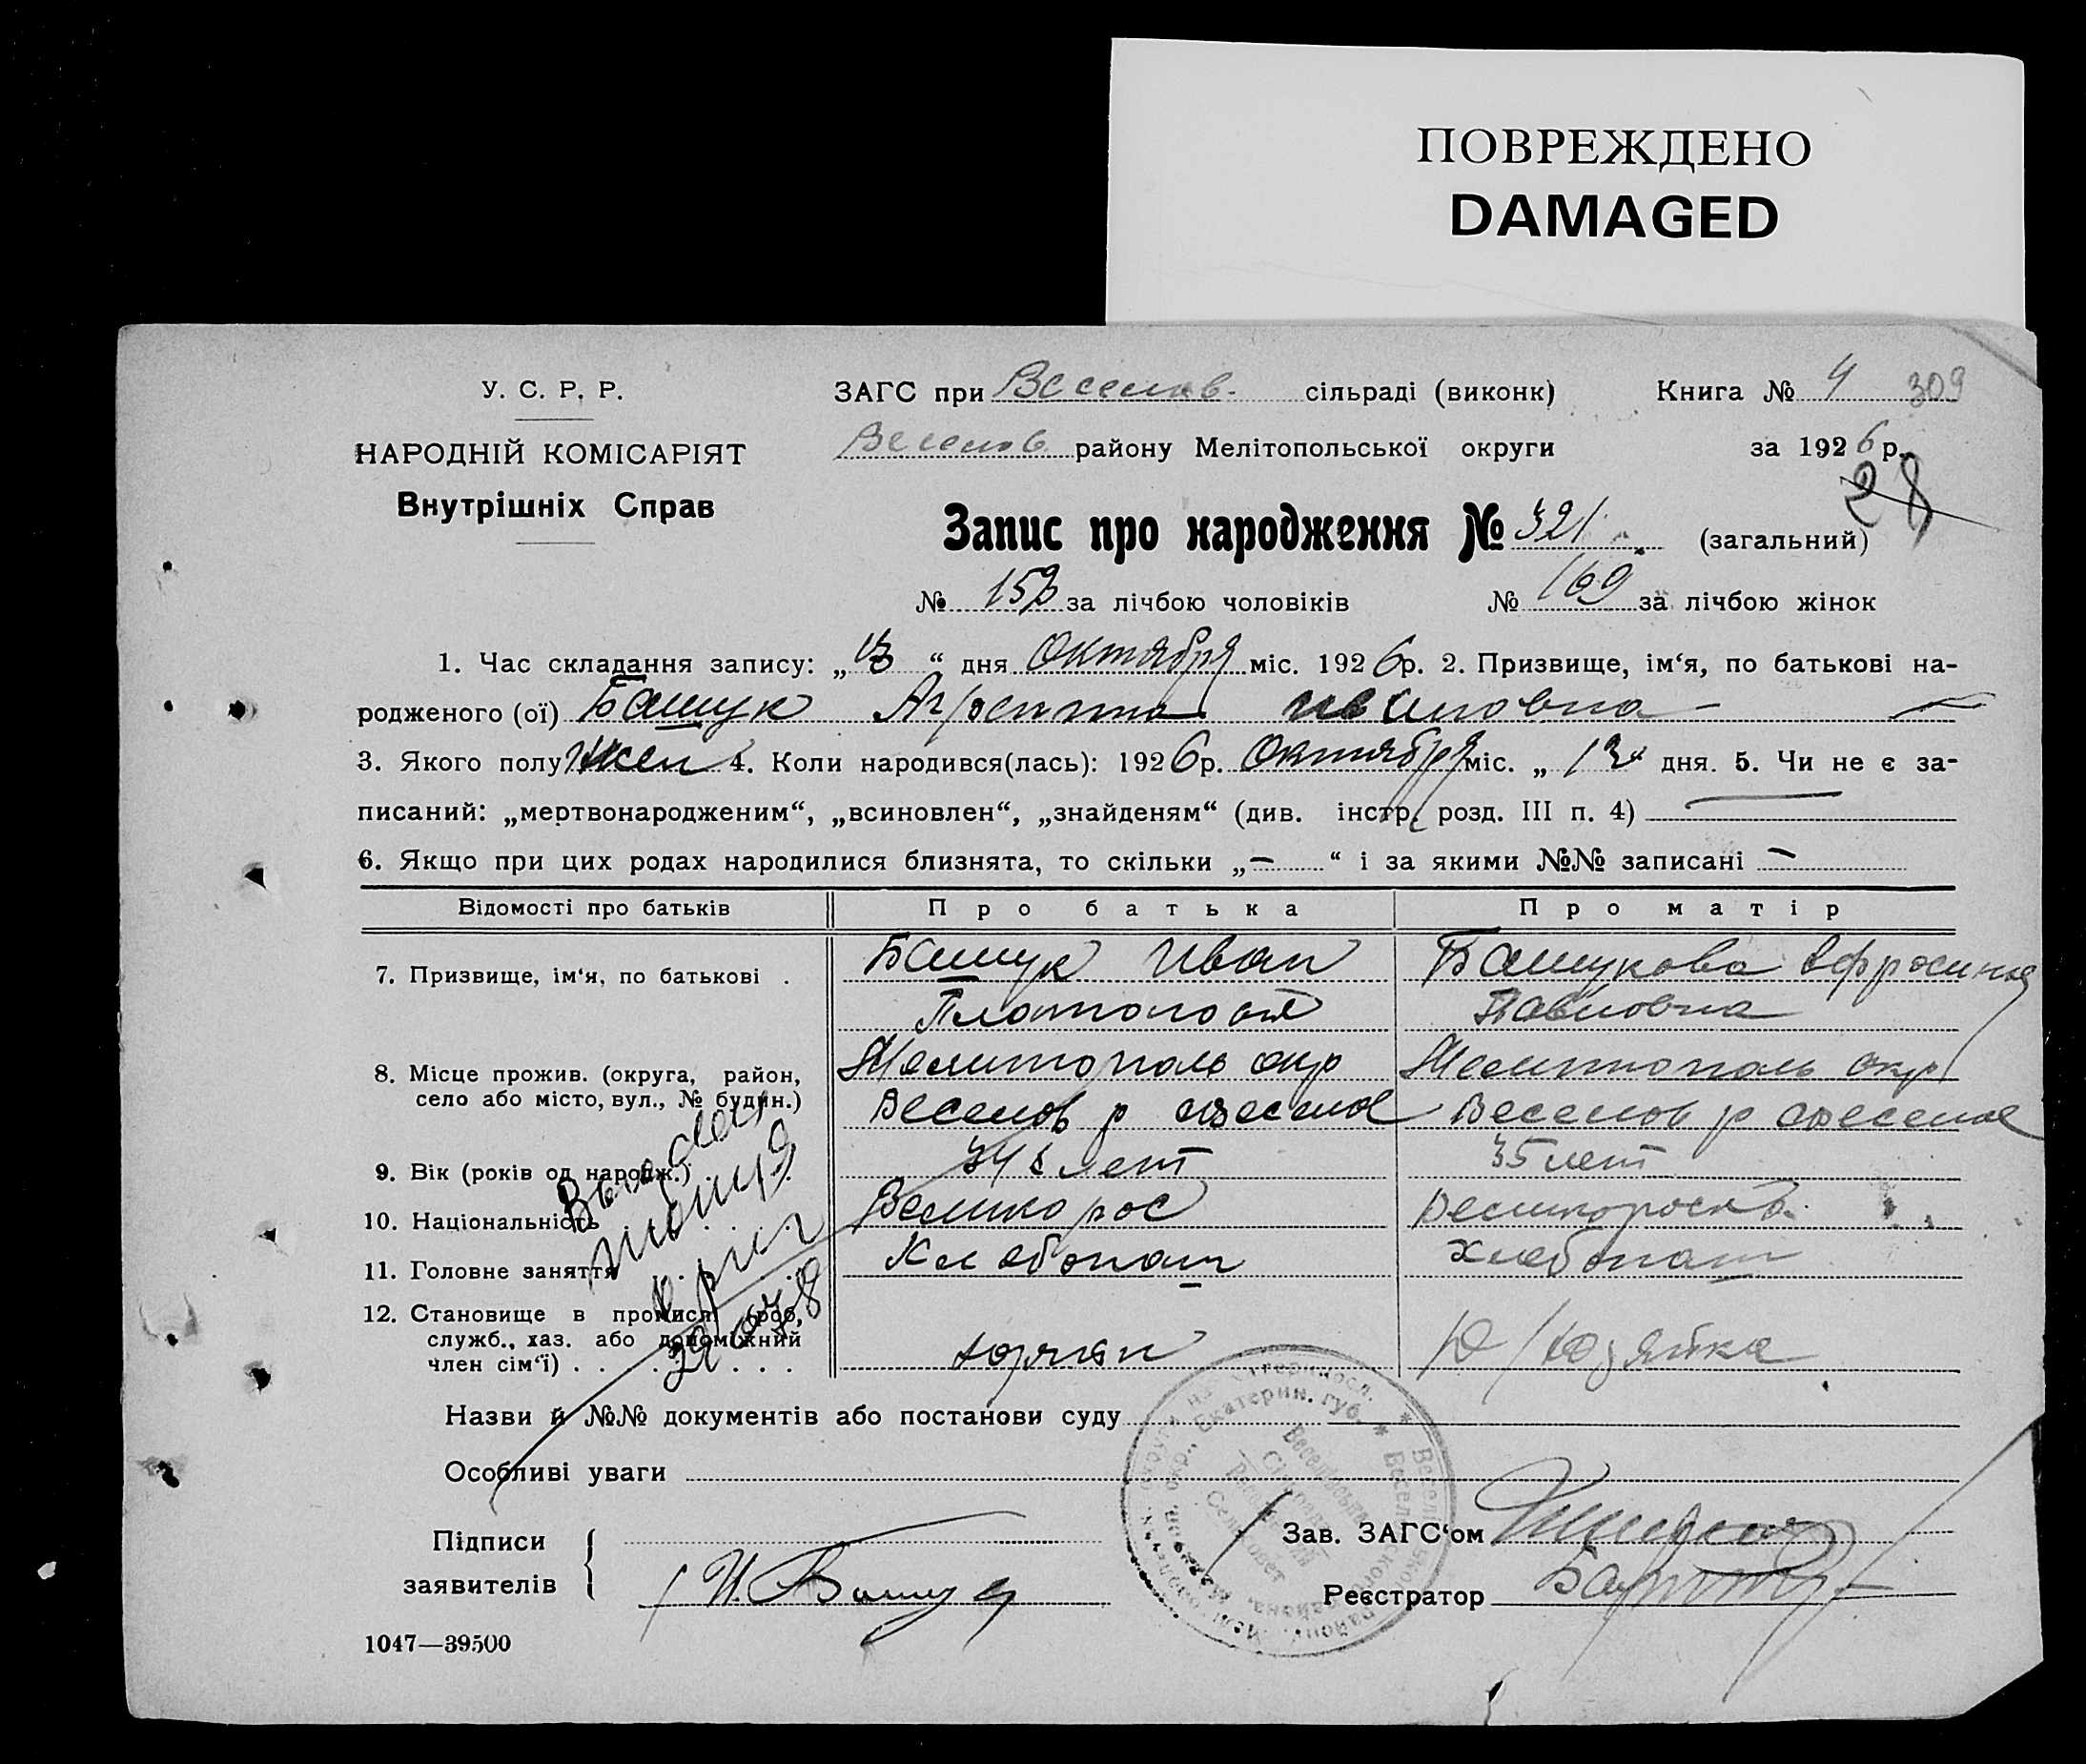 ПОВРЕЖДЕНО
DAMAGED
У. С. Р. Р.
НАРОДНІЙ КОМІСАРІЯТ
Внутрішніх Справ
ЗАГС при Веселов. сільраді (виконк) Книга № 4 309
Веселов району Мелітопольської округи за 1926 р.
28
Запис про народження № 321 (загальний)
№ 152 за лічбою чоловіків № 169 за лічбою жінок
1. Час складання запису: „ “ дня Октября міс. 1926 р. 2. Призвище, ім‘я, по батькові на-
родженого (ої) Башук Агрепина Ивановна
3. Якого полу жен 4. Коли народився(лась): 1926 р. Октября міс. „ дня. 5. Чи не є за-
писаний: „мертвонародженим“, „всиновлен“, „знайденям“ (див. інстр. розд. III п. 4) —
6. Якщо при цих родах народилися близнята, то скільки „—“ і за якими №№ записані —
Відомості про батьків Про батька Про матір
7. Призвище, ім‘я, по батькові . Башук Иван Башукова Ефросиния
Павловна
8. Місце прожив. (округа, район, Мелитополь окр Мелитополь окр
село або місто, вул., № будин.) Веселов р Веселое Веселов р Веселое
9. Вік (років од народж.) 34 лет 35 лет
10. Національність Великорос Великороска
11. Головне заняття Хлебопаш Хлебопаш
12. Становище в промисл. (роб, хозяин Д/хозяйка
служб., хаз. або допоміжний
член сім‘ї) . . . . . . . .
Назви й №№ документів або постанови суду
Особливі уваги
Підписи
заявителів И. Башук
Зав. ЗАГС‘ом
Реєстратор
1047—39500